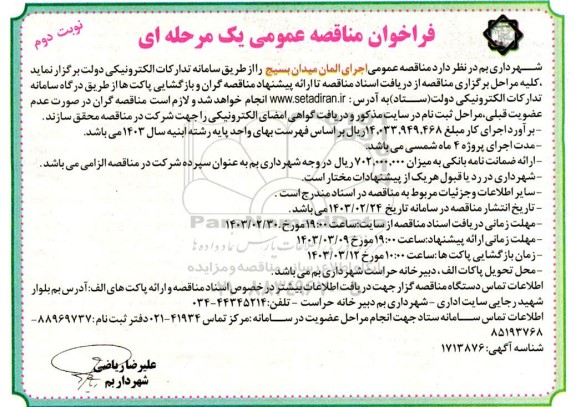 نوبت دوم
فراخوان مناقصه عمومی یک مرحله ای
شهرداری بم در نظر دارد مناقصه عمومی اجرای المان میدان بسیج را از طریق سامانه تدارکات الکترونیکی دولت برگزار نماید
، کلیه مراحل برگزاری مناقصه از دریافت اسناد مناقصه تا ارائه پیشنهاد مناقصه گران و بازگشایی پاکت ها از طریق درگاه سامانه
تدارکات الکترونیکی دولت (ستاد) به آدرس : www.setadiran.ir انجام خواهد شد و لازم است مناقصه گران در صورت عدم
عضویت قبلی، مراحل ثبت نام در سایت مذکور و دریافت گواهی امضای الکترونیکی را جهت شرکت در مناقصه محقق سازند.
-برآورد اجرای کار مبلغ ۱۴،۰۳۳،۹۴۹،۴۶۸ ریال بر اساس فهرست بهای واحد پایه رشته ابنیه سال ۱۴۰۳ می باشد.
-مدت اجرای پروژه ۴ ماه شمسی می باشد.
-ارائه ضمانت نامه بانکی به میزان ۷۰۲،۰۰۰،۰۰۰ ریال در وجه شهرداری بم به عنوان سپرده شرکت در مناقصه الزامی می باشد.
-شهرداری در رد یا قبول هر یک از پیشنهادات مختار است.
-سایر اطلاعات وجزئیات مربوط به مناقصه در اسناد مندرج است .
-تاریخ انتشار مناقصه در سامانه تاریخ ۱۴۰۳/۰۲/۲۴ می باشد.
-مهلت زمانی دریافت اسناد مناقصه از سایت: ساعت ۱۹:۰۰ مورخ ۱۴۰۳/۰۲/۳۰
-مهلت زمانی ارائه پیشنهاد: ساعت ۱۹:۰۰ مورخ ۱۴۰۳/۰۳/۰۹
-زمان بازگشایی پاکت ها: ساعت ۱۰:۰۰ مورخ ۱۴۰۳/۰۳/۱۲
-محل تحویل پاکات الف ، دبیرخانه حراست شهرداری بم می باشد.
اطلاعات تماس دستگاه مناقصه گزار جهت دریافت اطلاعات بیشتر در خصوص اسناد مناقصه و ارائه پاکت های الف: آدرس بم بلوار
شهید رجایی سایت اداری -شهرداری بم دبیرخانه حراست - تلفن: ۴۴۳۴۵۲۱۴-۰۳۴
اطلاعات تماس سامانه ستاد جهت انجام مراحل عضویت در سامانه: مرکز تماس ۴۱۹۳۴-۰۲۱ دفتر ثبت نام: ۸۸۹۶۹۷۳۷-
۸۵۱۹۳۷۶۸
شناسه آگهی: ۱۷۱۳۸۷۶
علیرضا ریاضی
شهردار بم